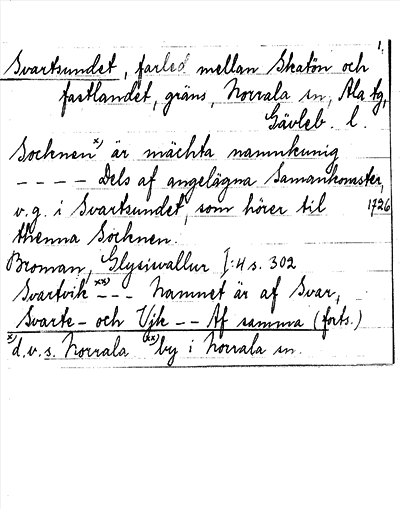 1.
Svartsundet, farled mellan Skatön och
fastlandet, gräns, Norrala sn, Ala tg,
Gävleb. l.
Socknen x) är mächta namnkunig
- - - - Dels af angelägna Samankomster,
v.g. i Svartsundet, som hörer til 1726
thenna Socknen.
Broman, Glysisvallur I:4 s. 302
Svartvik xx) - - - Namnet är af Svar,
Svarte- och Vjk - - Af samma (forts.)
x) d.v.s. Norrala xx) by i Norrala sn.